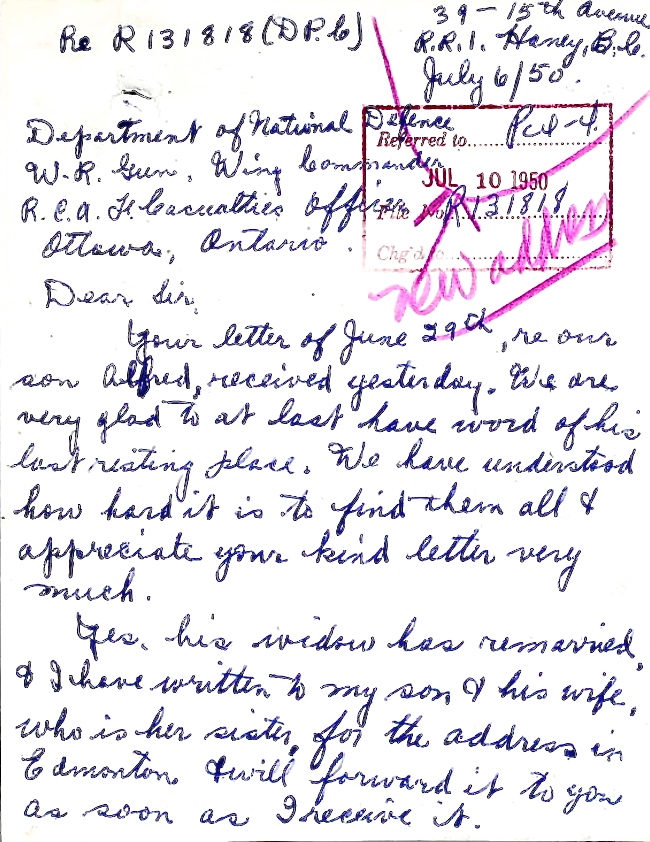 39 - 15th Avenue
Re R131818 (DP.C)
R.R.1. Haney, B.C.
July 6/50.
Department of National Defence
W.R. Gun, Wing Commander
R.C.A.F. Casualties Officer
Ottawa, Ontario.
Referred to
JUL 10 1950
File No. R131818
Chg'd to
new address
Dear Sir,
Your letter of June 29th, re our
son Alfred, received yesterday. We are
very glad to at last have word of his
last resting place. We have understood
how hard it is to find them all &
appreciate your kind letter very
much.
Yes, his widow has remarried,
& I have written to my son & his wife,
who is her sister, for the address in
Edmonton & will forward it to you
as soon as I receive it.